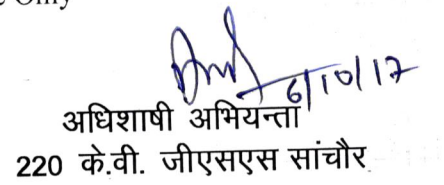 Only
6/10/17
अधिशाषी अभियन्ता
220 के.वी. जीएसएस सांचौर